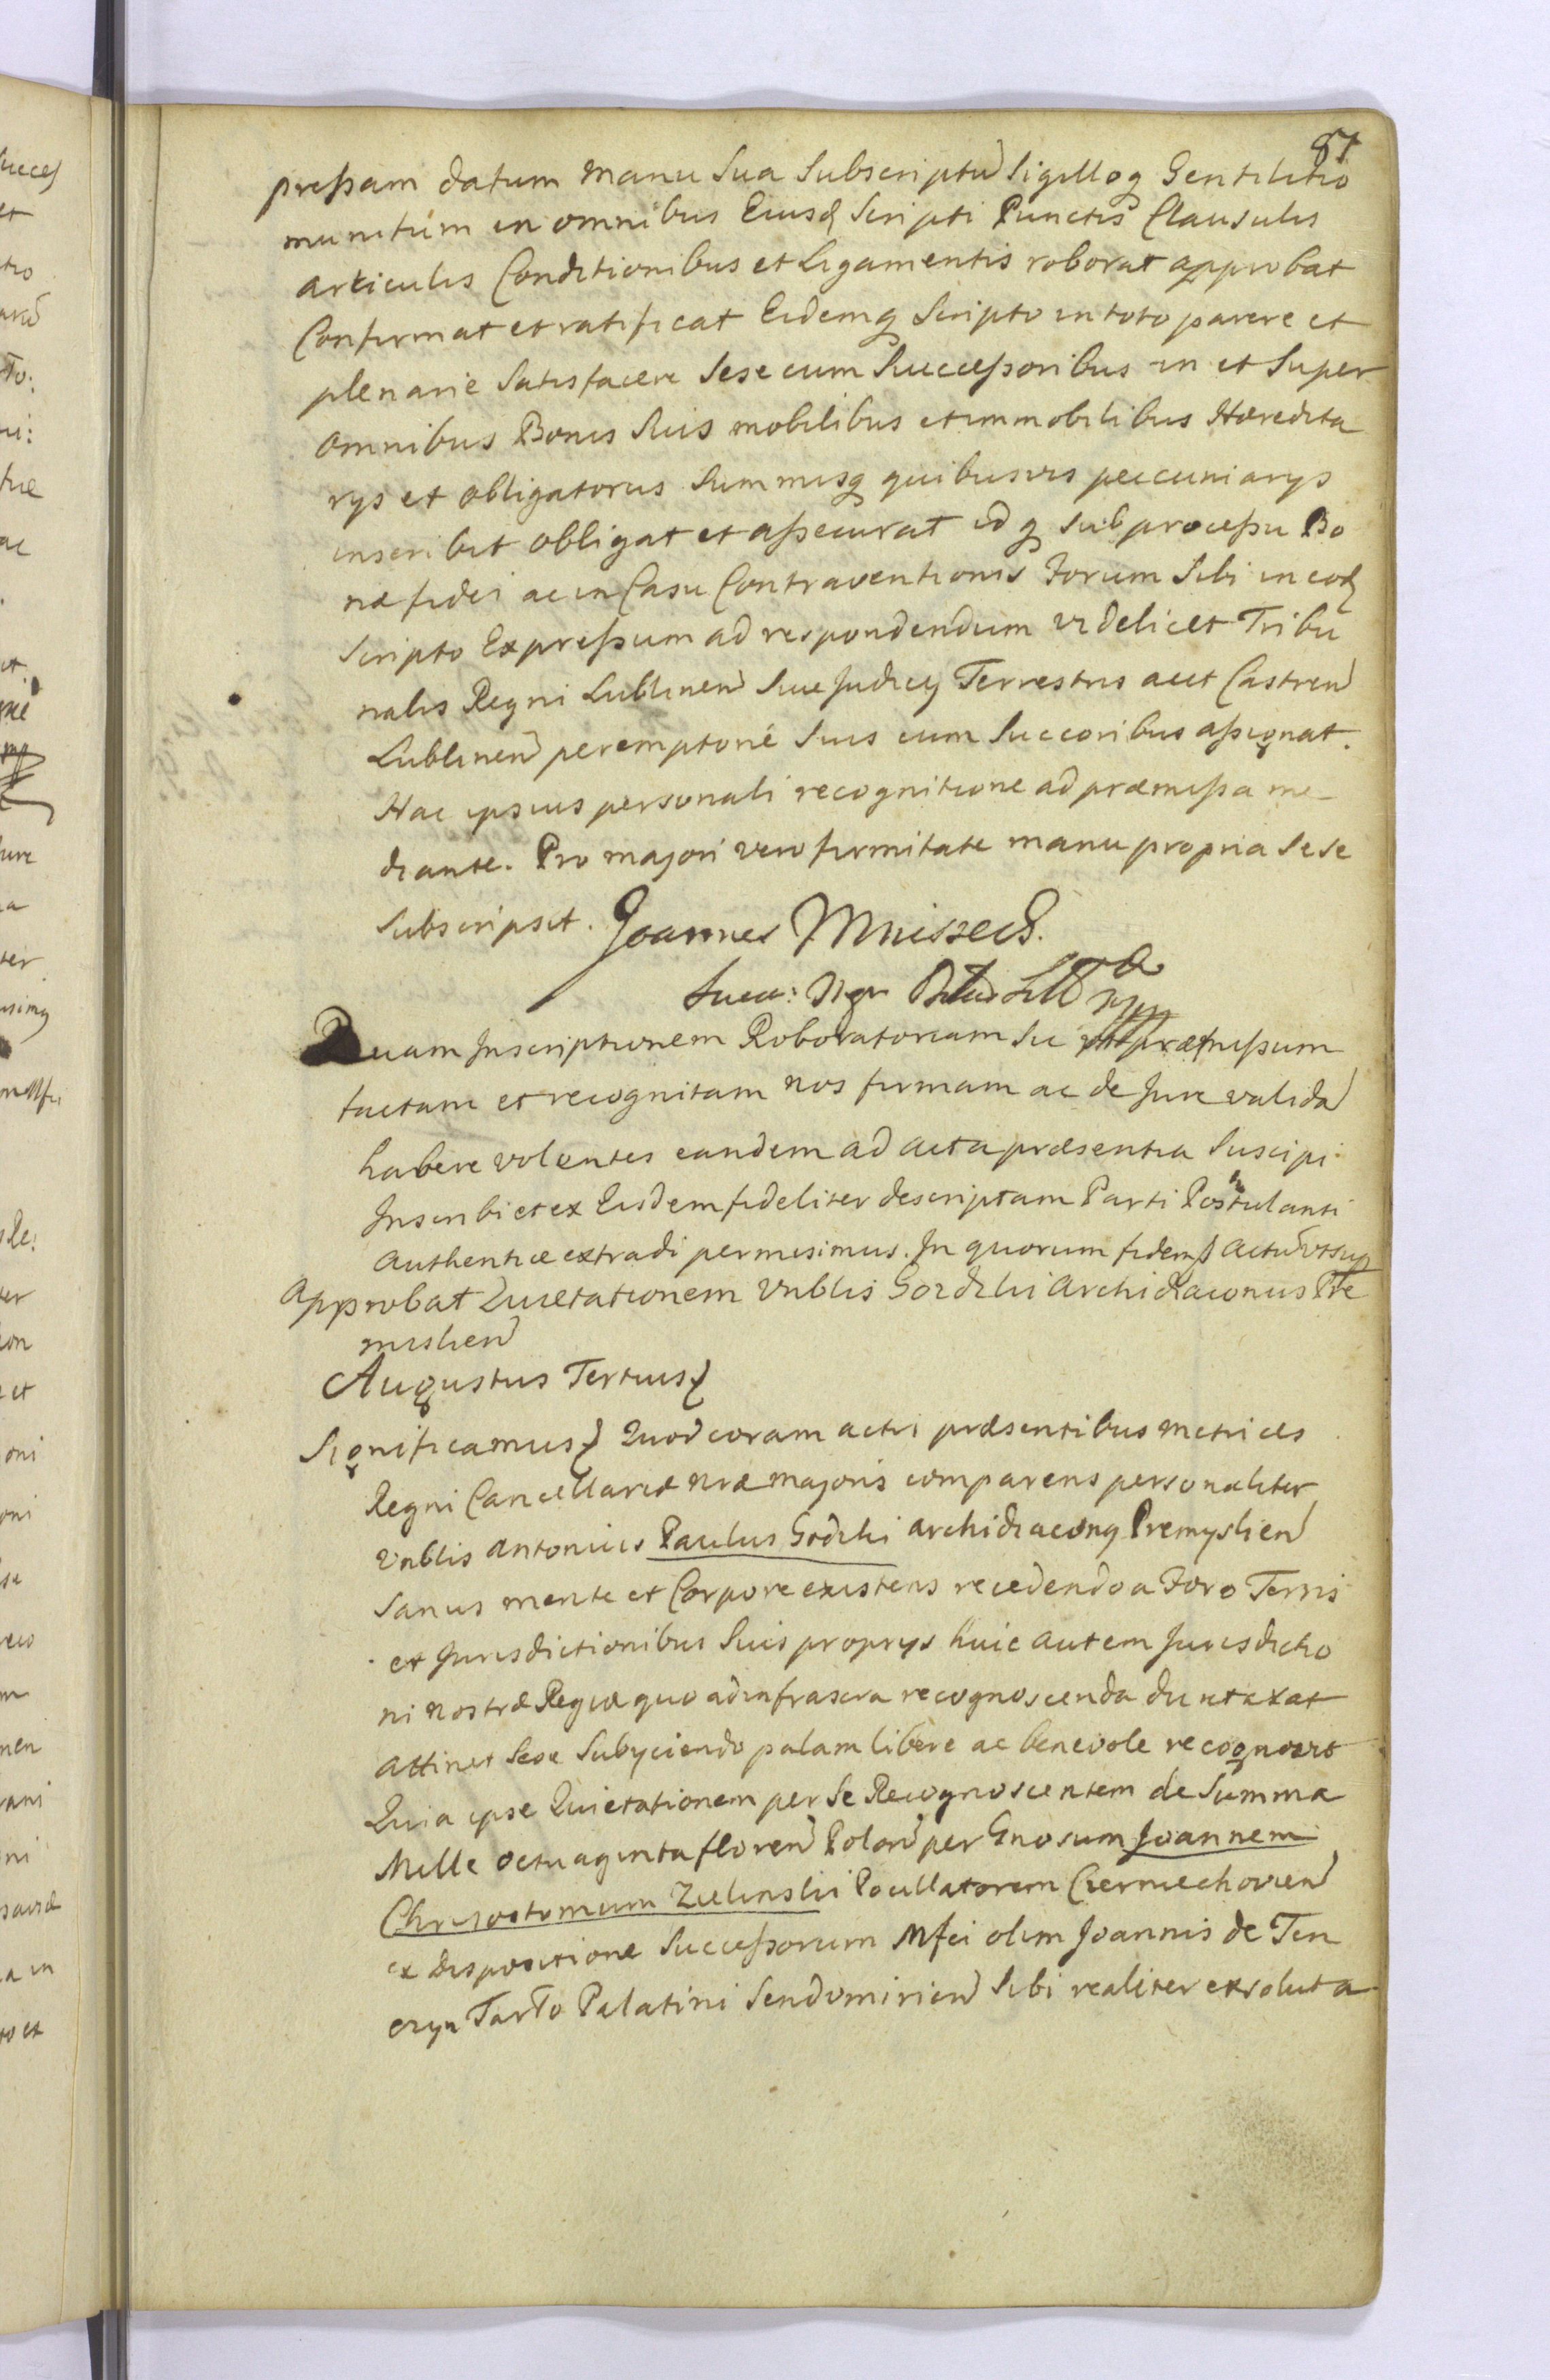 87
pressam datum manu Sua Subscriptũ Sigilloq Gentilitio
munitum in omnibus Eiusd Scripti Punctis Clausulis
articulis Conditionibus et Ligamentis roborat approbat
Confirmat et ratificat Eidemq Scripto in toto parere et
plenarie Satisfacere Sese cum Successoribus in et Super
omnibus Bonis Suis mobilibus et immobilibus Hæredita
rys et obligatorus Summisq quibusvis pecuniarys
inscribit obligat et assecurat idq sub processu Bo
næ fidei ac in Casu Contraventionis Forum Sibi in eod
Scripto Expressum ad respondendum videlicet Tribu
nalis Regni Lublinen Sive Judicy Terrestris aut Castren
Lublinen peremptorie Suis cum Succoribus assignat.
Hac ipsius personali recognitione ad præmissa me
diante. Pro majori vero firmitate manu propria Sese
Subscripsit. Joannes Mniszech.
Quam Inscriptionem Roboratoriam Sic præmissum
factam et recognitam nos firmam ac de Jure validã
habere volentes eandem ad acta præsentia Suscipi
Inscribi et ex Eisdem fideliter descriptam Parti Postulanti
authentice extradi permisimus. In quorum fidem Actũ vtsup
Approbat Quietationem Vnblis Gozdzki Archidiaconus Pre
mislien
Augustus Tertius
Significamus Quod coram actis præsentibus metrices
Regni Cancellariæ nræ majoris comparens personaliter
Vnblis Antonius Paulus Gozdzki archidiaconq Premyslien
Sanus mente et Corpore existens recedendo a Foro Terris
et Jurisdictionibus Suis proprys huic autem Jurisdictio
ni nostræ Regiæ quo ad infrascra recognoscenda duntaxat
attinet Sese Subyciendo palam libere ac benevole recognovit
Quia ipse Quietationem per Se Recognoscentem de Summa
Mille octuaginta floren Polon per Gnosum Joannem
Chrisostomum Zielinski Pocillatorem Czerniechovien
ex dispositione Successorum Mfci olim Joannis de Ten
czyn Tarło Palatini Sendomirien Sibi realiter exsoluta